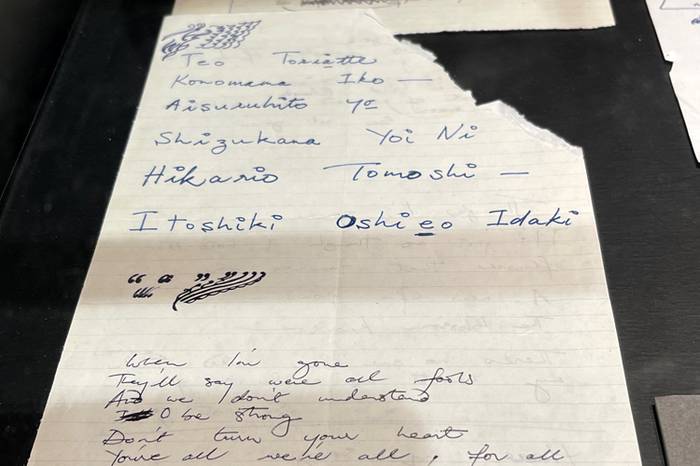 Teo Toriatte
Konomama Iko —
Aisuruhito yo
Shizukana Yoi Ni
Hikario Tomoshi —
Itoshiki Oshieo Idaki
When I'm gone
They'll say we're all fools
And we don't understand
O be strong
Don't turn your heart
You're all we're all, for all